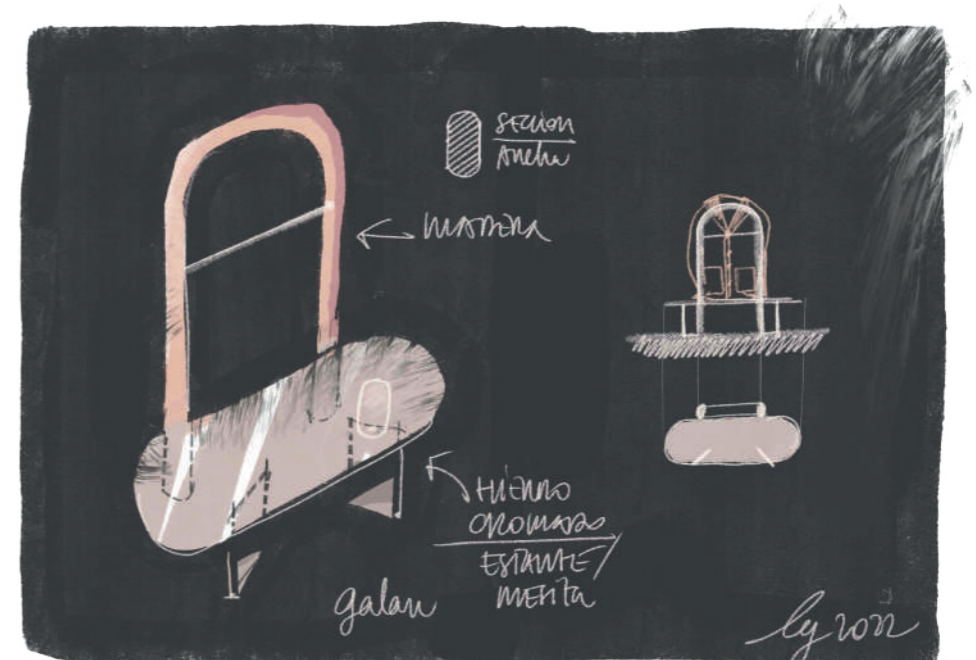 SECCION
Ancha
MADERA
HIERRO
CROMADO
ESTANTE/
MESITA
galan
lg 2022